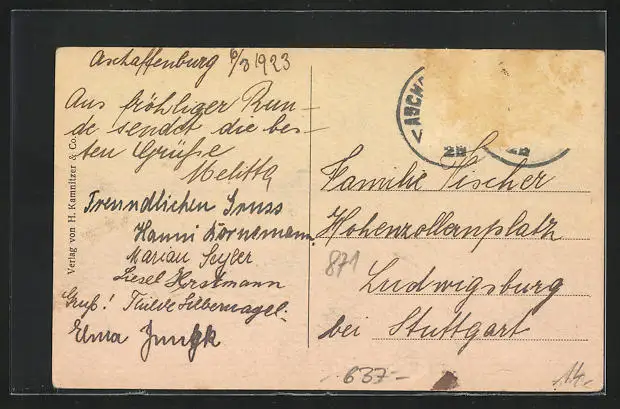 Aschaffenburg 6/3 1923
Aus fröhliger Run-
de sendet die bes-
ten Grüße
Melitta
Freundlichen Gruss
Hanni Bornemann
Marian Seyler
Liesel Horstmann
Gruß! Thilde Silbernagel.
Elma Jungk
Verlag von H. Kamnitzer & Co.
ASCH
Familie Fischer
Hohenzollernplatz
871
Ludwigsburg
bei Stuttgart
637-
14.-